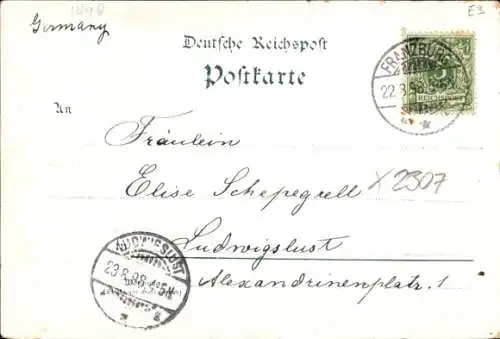 1898
E3
Germany
Deutsche Reichspost
Postkarte
FRANZBURG
22.8.98
REICHSPOST
An
Fräulein
Elise Schepegrell
X 2307
Ludwigslust
Alexandrinenplatz 1
LUDWIGSLUST
23.8.98